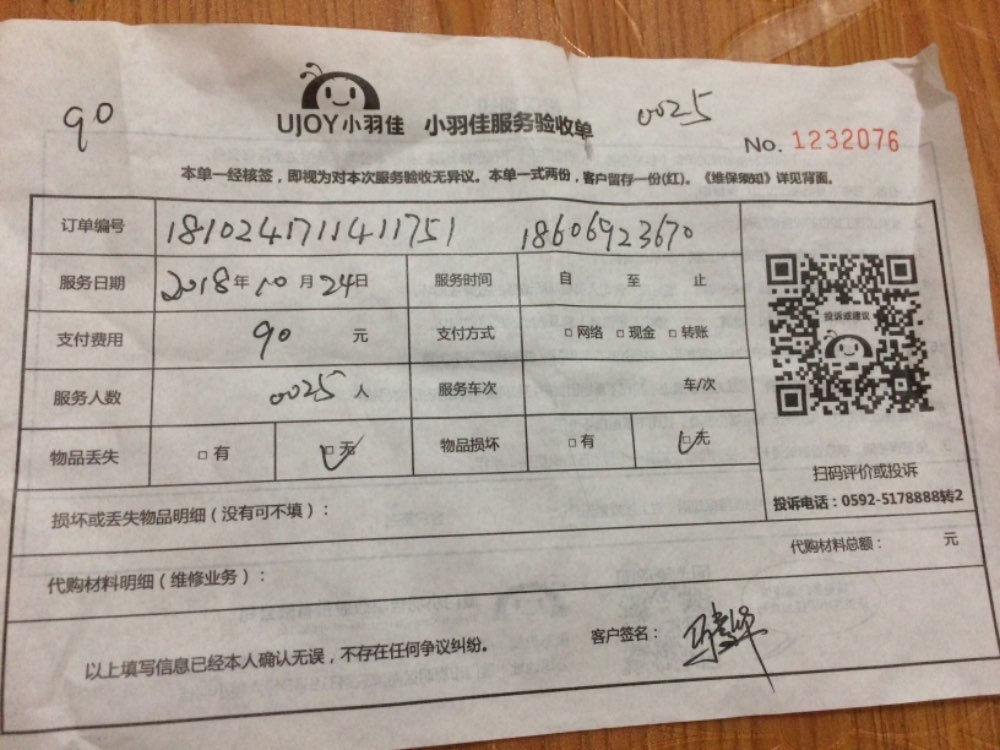 90
UJOY小羽佳 小羽佳服务验收单
0025
No. 1232076
本单一经核签，即视为对本次服务验收无异议。本单一式两份，客户留存一份(红)。《维保须知》详见背面。
订单编号 1810241711411751 18606923670
服务日期 2018年10月24日 服务时间 自 至 止
投诉或建议
支付费用 90 元 支付方式 □网络 □现金 □转账
服务人数 0025 人 服务车次 车/次
物品丢失 □有 □无 物品损坏 □有 □无
扫码评价或投诉
投诉电话：0592-5178888转2
损坏或丢失物品明细（没有可不填）：
代购材料总额： 元
代购材料明细（维修业务）：
以上填写信息已经本人确认无误，不存在任何争议纠纷。 客户签名：